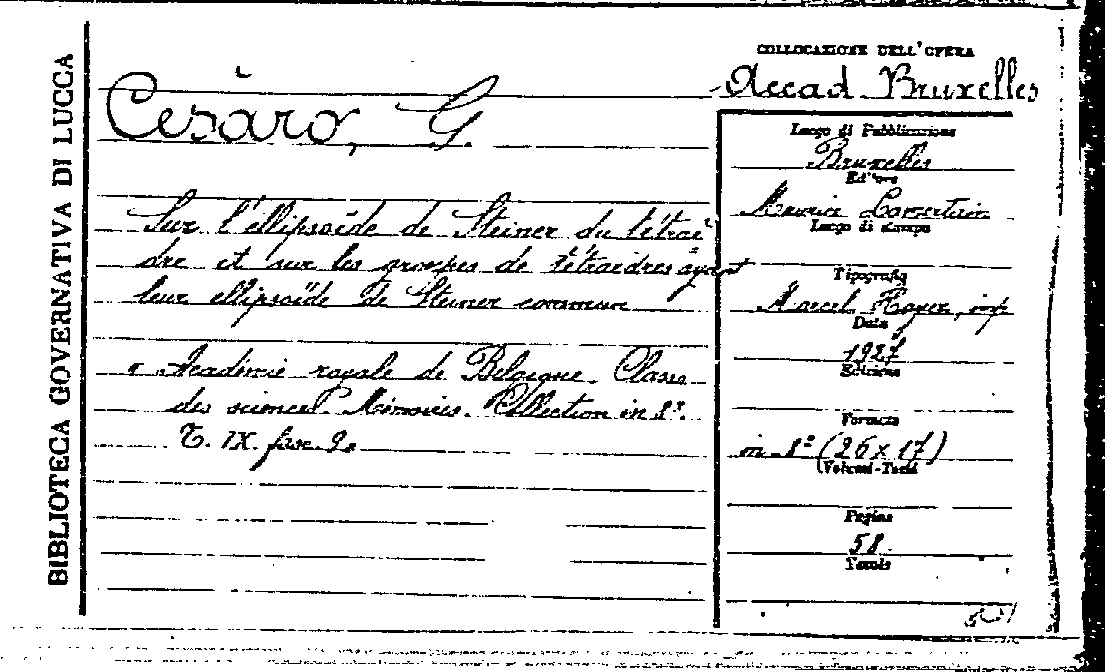 BIBLIOTECA GOVERNATIVA DI LUCCA
Cesàro, G.
Sur l'ellipsoïde de Steiner du tétraè
dre et sur les groupes de tétraèdres ayant
leur ellipsoïde de Steiner commun
Académie royale de Belgique. Classe
des sciences. Mémoires. Collection in 8°.
T. IX. fasc. 9.
COLLOCAZIONE DELL'OPERA
Accad. Bruxelles
Luogo di Pubblicazione
Bruxelles
Editore
Maurice Lamertin
Luogo di stampa
Tipografia
Marcel Hayez, imp
Data
1927
Edizione
Formato
in-8° (26 x 17)
(Volumi-Tomi)
Pagine
58
Tavole